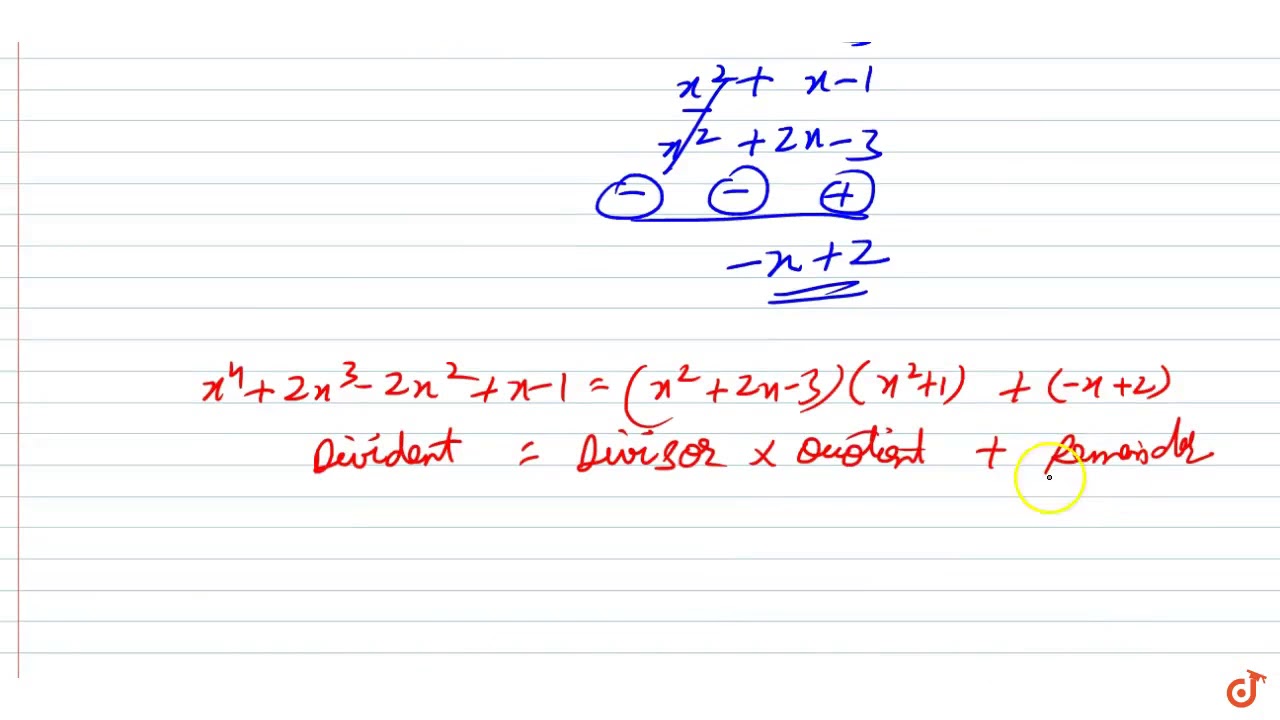 x² + x - 1
x² + 2x - 3
- - +
-x + 2
x⁴ + 2x³ - 2x² + x - 1 = (x² + 2x - 3)(x² + 1) + (-x + 2)
Divident = Divisor × Quotient + Remainder